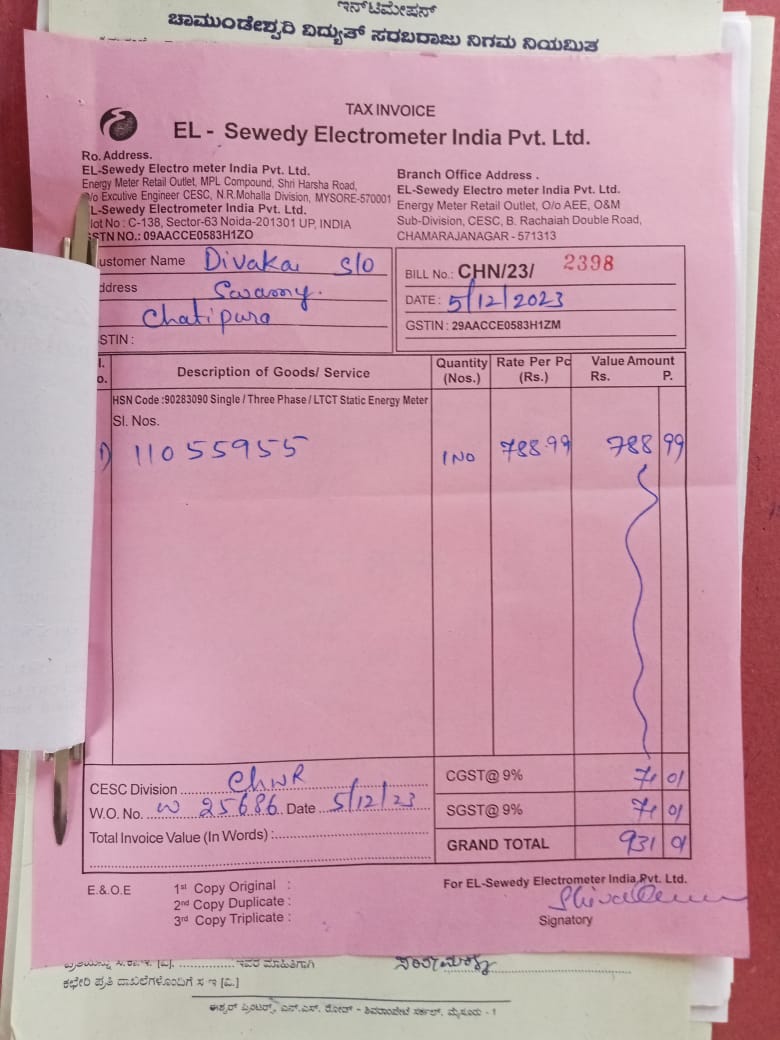 ಇನ್‌ಟಿಮೇಷನ್
ಚಾಮುಂಡೇಶ್ವರಿ ವಿದ್ಯುತ್ ಸರಬರಾಜು ನಿಗಮ ನಿಯಮಿತ
TAX INVOICE
EL - Sewedy Electrometer India Pvt. Ltd.
Ro. Address.
EL-Sewedy Electro meter India Pvt. Ltd.
Energy Meter Retail Outlet, MPL Compound, Shri Harsha Road,
/o Excutive Engineer CESC, N.R.Mohalla Division, MYSORE-570001
L-Sewedy Electrometer India Pvt. Ltd.
lot No : C-138, Sector-63 Noida-201301 UP, INDIA
STN NO.: 09AACCE0583H1ZO
Branch Office Address .
EL-Sewedy Electro meter India Pvt. Ltd.
Energy Meter Retail Outlet, O/o AEE, O&M
Sub-Division, CESC, B. Rachaiah Double Road,
CHAMARAJANAGAR - 571313
ustomer Name Divakar S/O
ddress Swamy.
Chatipura
STIN :
BILL No.: CHN/23/ 2398
DATE : 5/12/2023
GSTIN : 29AACCE0583H1ZM
l. o. Description of Goods/ Service Quantity (Nos.) Rate Per Pc (Rs.) Value Amount Rs. P.
HSN Code :90283090 Single / Three Phase / LTCT Static Energy Meter
Sl. Nos.
1) 11055955 1 NO 788.99 788 99
CESC Division CHNR CGST@ 9% 71 01
W.O. No. W 25686 Date 5/12/23 SGST@ 9% 71 01
Total Invoice Value (In Words) : GRAND TOTAL 931 01
E.& O.E
1st Copy Original :
2nd Copy Duplicate :
3rd Copy Triplicate :
For EL-Sewedy Electrometer India Pvt. Ltd.
Signatory
ಇವರ ಮಾಹಿತಿಗಾಗಿ
ಕಛೇರಿ ಪ್ರತಿ ದಾಖಲೆಗಳೊಂದಿಗೆ ಸ ಇ [ವಿ.]
ಈಶ್ವರ್ ಪ್ರಿಂಟರ್ಸ್, ಎನ್.ಎಸ್. ರೋಡ್ - ಶಿವರಾಂಪೇಟೆ ಸರ್ಕಲ್, ಮೈಸೂರು - 1